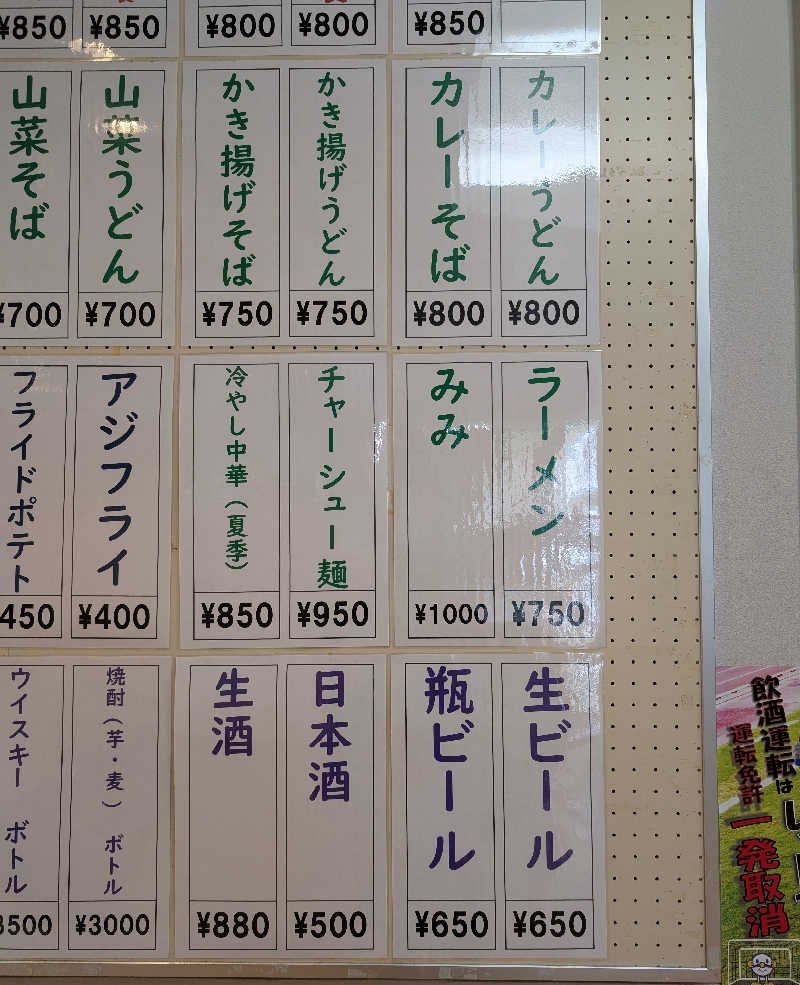 ¥850
¥800
¥800
¥850
¥850
カレーうどん
¥800
カレーそば
¥800
かき揚げうどん
¥750
かき揚げそば
¥750
山菜うどん
¥700
山菜そば
¥700
ラーメン
¥750
みみ
¥1000
チャーシュー麺
¥950
冷やし中華(夏季)
¥850
アジフライ
¥400
フライドポテト
450
生ビール
¥650
瓶ビール
¥650
日本酒
¥500
生酒
¥880
焼酎(芋・麦) ボトル
¥3000
ウイスキー ボトル
3500
飲酒運転は
運転免許
一発取消